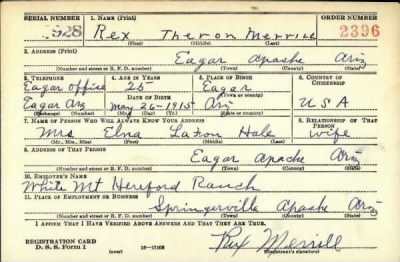 SERIAL NUMBER 1. NAME (Print) ORDER NUMBER
528 Rex Theron Merrill 2396
(First) (Middle) (Last)
2. ADDRESS (Print)
Eagar Apache Ariz
(Number and street or R. F. D. number) (Town) (County) (State)
3. TELEPHONE 4. AGE IN YEARS 5. PLACE OF BIRTH 6. COUNTRY OF CITIZENSHIP
Eagar Office 25 Eagar
DATE OF BIRTH (Town or county)
Eagar Arz May 26-1915 Ari U S A
(Exchange) (Number) (Mo.) (Day) (Yr.) (State or country)
7. NAME OF PERSON WHO WILL ALWAYS KNOW YOUR ADDRESS 8. RELATIONSHIP OF THAT PERSON
Mrs Elna Hale wife
(Mr., Mrs., Miss) (First) (Middle) (Last)
9. ADDRESS OF THAT PERSON
Eagar Apache Ariz
(Number and street or R. F. D. number) (Town) (County) (State)
10. EMPLOYER'S NAME
White Mt Hereford Ranch
11. PLACE OF EMPLOYMENT OR BUSINESS
Springerville Apache Ariz
(Number and street or R. F. D. number) (Town) (County) (State)
I AFFIRM THAT I HAVE VERIFIED ABOVE ANSWERS AND THAT THEY ARE TRUE.
REGISTRATION CARD Rex Merrill
D. S. S. Form 1 (over) 16-17105 (Registrant's signature)